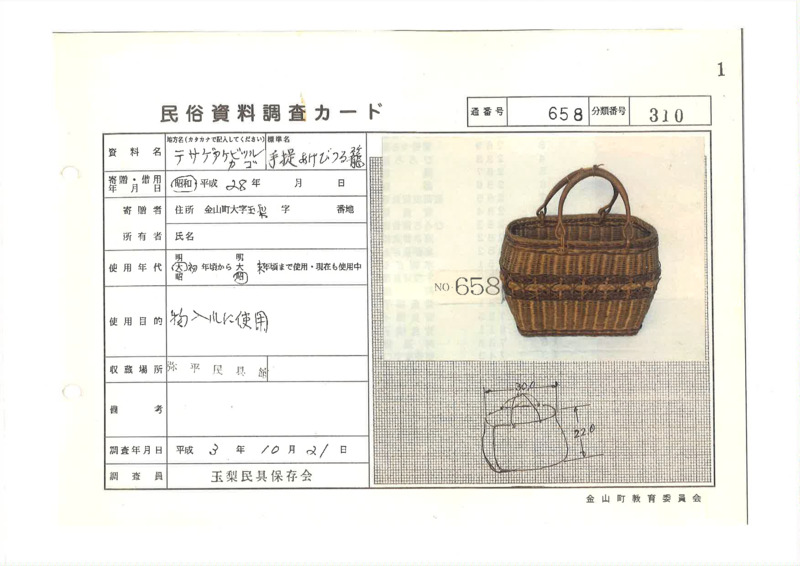 1
民俗資料調査カード
通番号 658 分類番号 310
資料名
地方名(カタカナで記入してください) 標準名
テサゲアケビツル 手提あけびつる籠
カゴ
寄贈・借用
年月日
昭和 平成 28年 月 日
寄贈者 住所 金山町大字玉梨 字 番地
所有者 氏名
使用年代
明 明
大 初 年頃から 大 年頃まで使用・現在も使用中
昭 昭
使用目的 物入れに使用
収蔵場所 弥平民具館
備考
調査年月日 平成 3 年 10 月 21 日
調査員 玉梨民具保存会
NO 658
30.0
22.0
金山町教育委員会